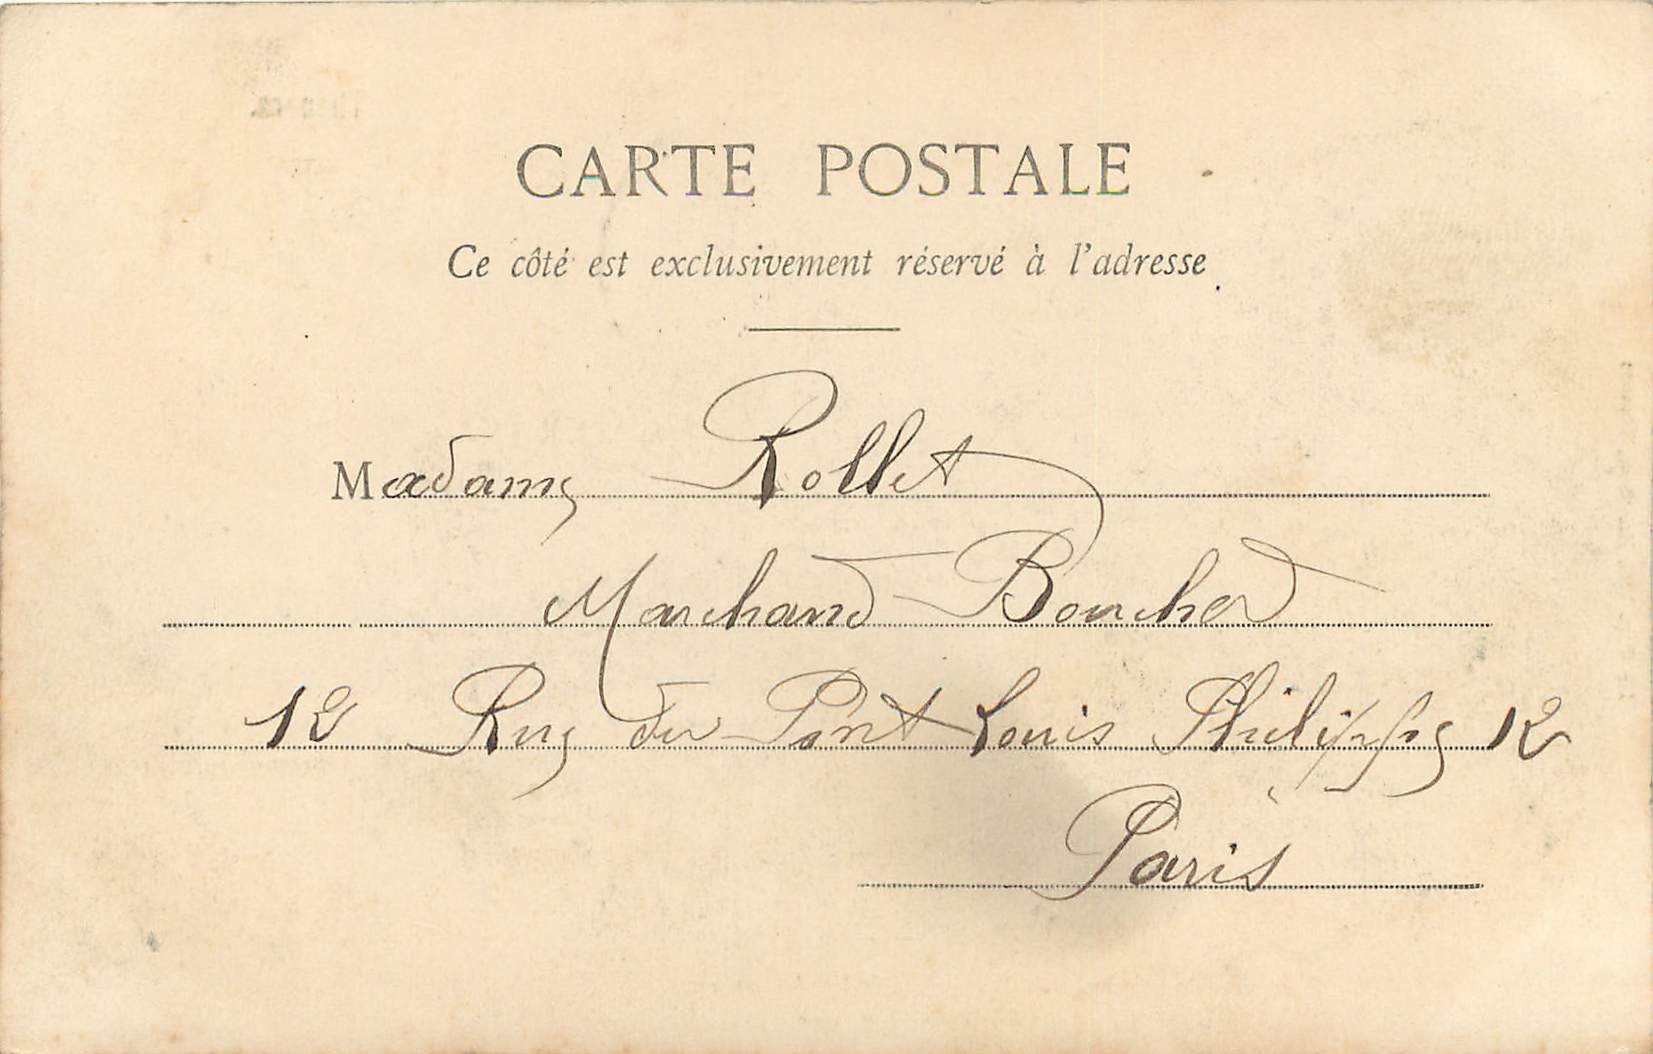 CARTE POSTALE
Ce côté est exclusivement réservé à l'adresse
Madame Rollet
Marchand Boucher
12 Rue du Pont Louis Philippe 12
Paris